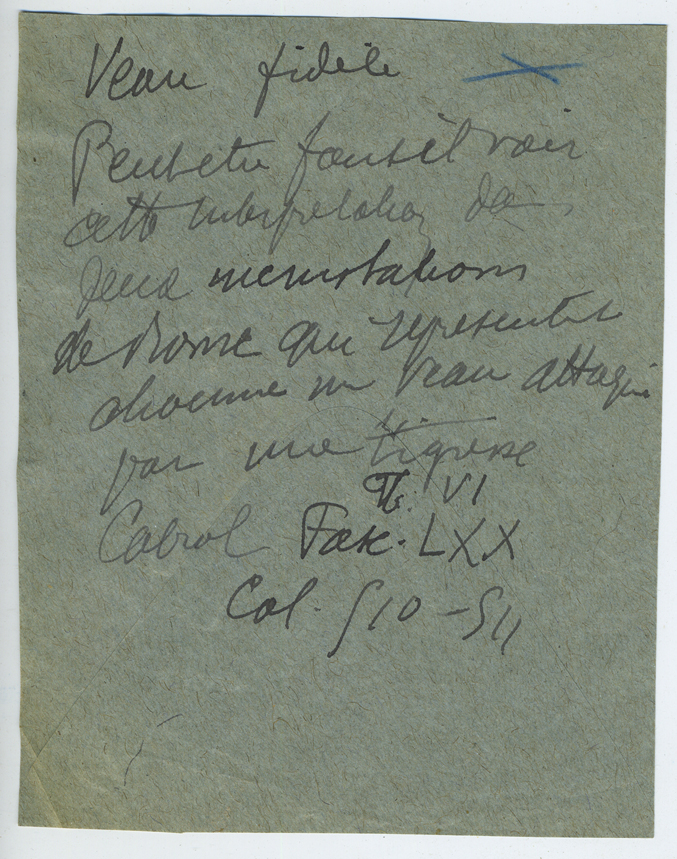 Veau fidèle
Peut etre faut il voir
cette interpretation dans
deux incrustations
de Rome qui representent
chacune un veau attaqué
par une tigresse
T. VI
Cabrol Fasc. LXX
Col. 510-511